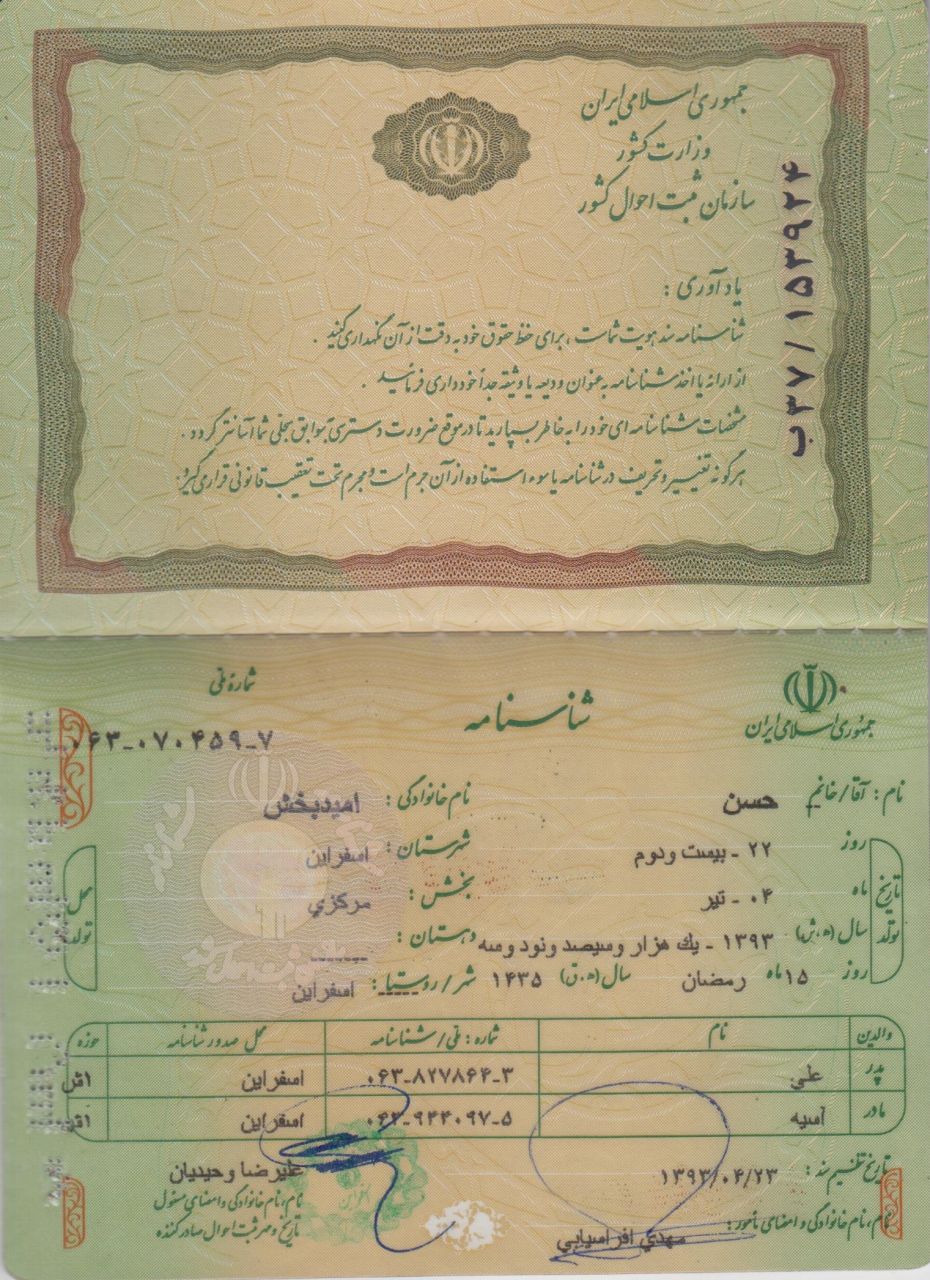 جمهوری اسلامی ایران
وزارت کشور
سازمان ثبت احوال کشور
ب۳۷/۱۵۳۹۲۴
یادآوری :
شناسنامه سند هویت شماست ، برای حفظ حقوق خود به دقت از آن نگهداری کنید .
از ارائه یا اخذ شناسنامه به عنوان ودیعه یا وثیقه جداً خودداری فرمائید .
مشخصات شناسنامه ای خود را به خاطر بسپارید تا در موقع ضرورت دسترسی به سوابق سجلی شما آسانتر گردد .
هرگونه تغییر و تحریف در شناسنامه یا سوء استفاده از آن جرم است و مجرم تحت تعقیب قانونی قرار می گیرد .
جمهوری اسلامی ایران
شناسنامه
شماره ملی
۰۶۳-۰۷۰۴۵۹-۷
نام : آقا/خانم حسن نام خانوادگی : امیدبخش
تاریخ تولد
روز ۲۲ - بیست ودوم شهرستان : اسفراین
ماه ۰۴ - تیر بخش : مرکزي
سال (ه.ش) ۱۳۹۳ - یك هزار وسیصد ونود وسه دهستان : -------
روز ۱۵ ماه رمضان سال (ه.ق) ۱۴۳۵ شهر/روستا : اسفراین
محل تولد
والدین نام شماره : ملی/شناسنامه محل صدور شناسنامه حوزه
پدر علي ۰۶۳-۸۲۷۸۶۴-۳ اسفراین ۱ش
مادر آسیه ۰۶۳-۹۴۴۰۹۷-۵ اسفراین ۱ش
تاریخ تنظیم سند : ۱۳۹۳/۰۴/۲۳
نام، نام خانوادگی و امضای مأمور : مهدي افراسیابي
علیرضا وحیدیان
نام، نام خانوادگی و امضای مسئول
تاریخ و مهر ثبت احوال صادرکننده